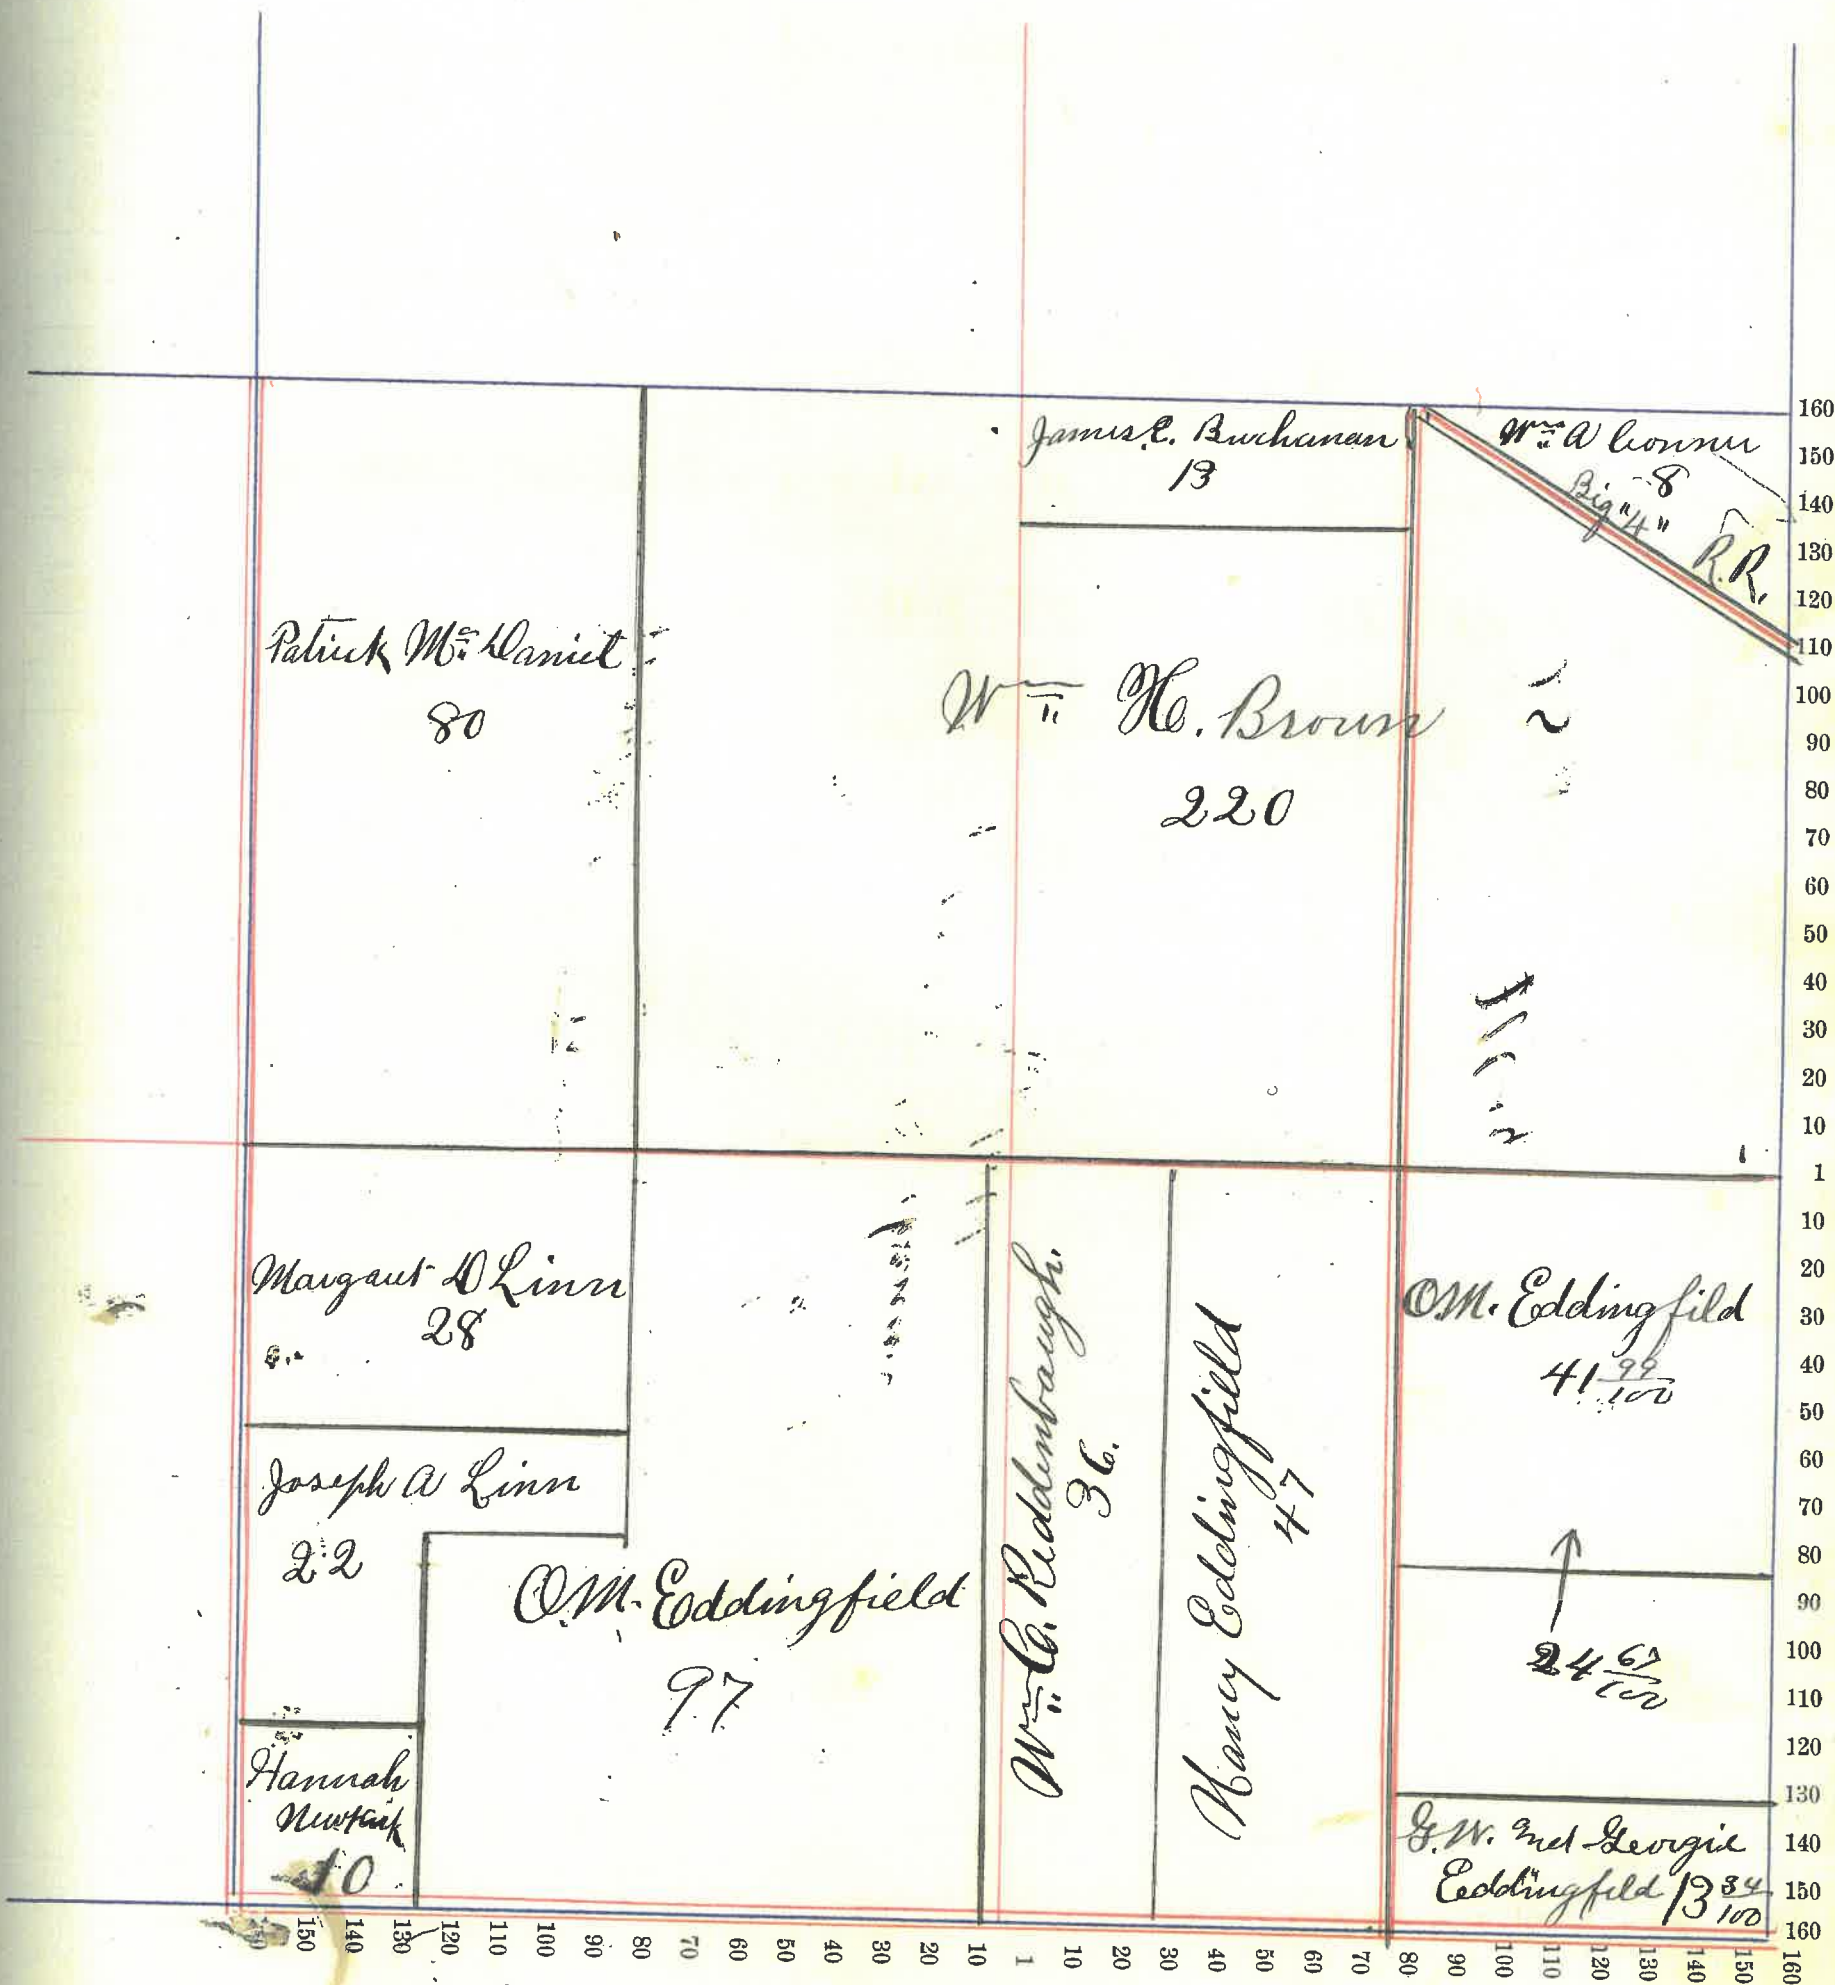 James E. Buchanan
13
Wm A Conner
8
Big "4"
R.R.
Patrick Mc Daniel
80
Wm H. Brown
220
Margaret D Linn
28
Joseph A Linn
22
Hannah
Newkirk
10
O.M. Eddingfield
97
Wm C. Reddenbaugh.
36.
Nancy Eddingfield
47
O.M. Eddingfild
41 99/100
24 67/100
G.W. and Georgie
Eddingfild 13 34/100
160
150
140
130
120
110
100
90
80
70
60
50
40
30
20
10
1
10
20
30
40
50
60
70
80
90
100
110
120
130
140
150
160
150 140 130 120 110 100 90 80 70 60 50 40 30 20 10 1 10 20 30 40 50 60 70 80 90 100 110 120 130 140 150 160